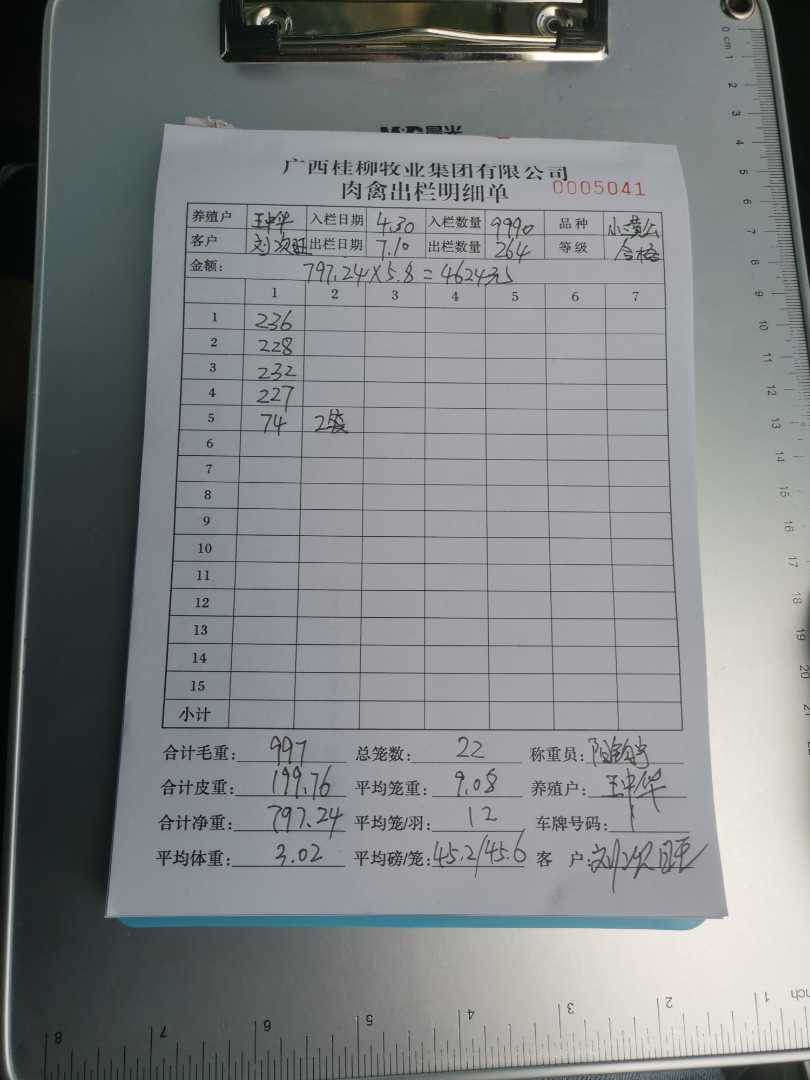 M&G晨光
广西桂柳牧业集团有限公司
肉禽出栏明细单 0005041
养殖户 王中华 入栏日期 4.30 入栏数量 9990 品种 小黄公
客户 刘次旺 出栏日期 7.10 出栏数量 264 等级 合格
金额: 797.24×5.8=4624元
1 2 3 4 5 6 7
1 236
2 228
3 232
4 227
5 74 2袋
6
7
8
9
10
11
12
13
14
15
小计
合计毛重: 997 总笼数: 22 称重员:
合计皮重: 199.76 平均笼重: 9.08 养殖户: 王中华
合计净重: 797.24 平均笼/羽: 12 车牌号码:
平均体重: 3.02 平均磅/笼: 45.2/45.6 客 户: 刘次旺
0 cm 1 2 3 4 5 6 7 8 9 10 11 12 13 14 15 16 17 18 19 20 21
8 7 6 5 4 3 2 1 inch